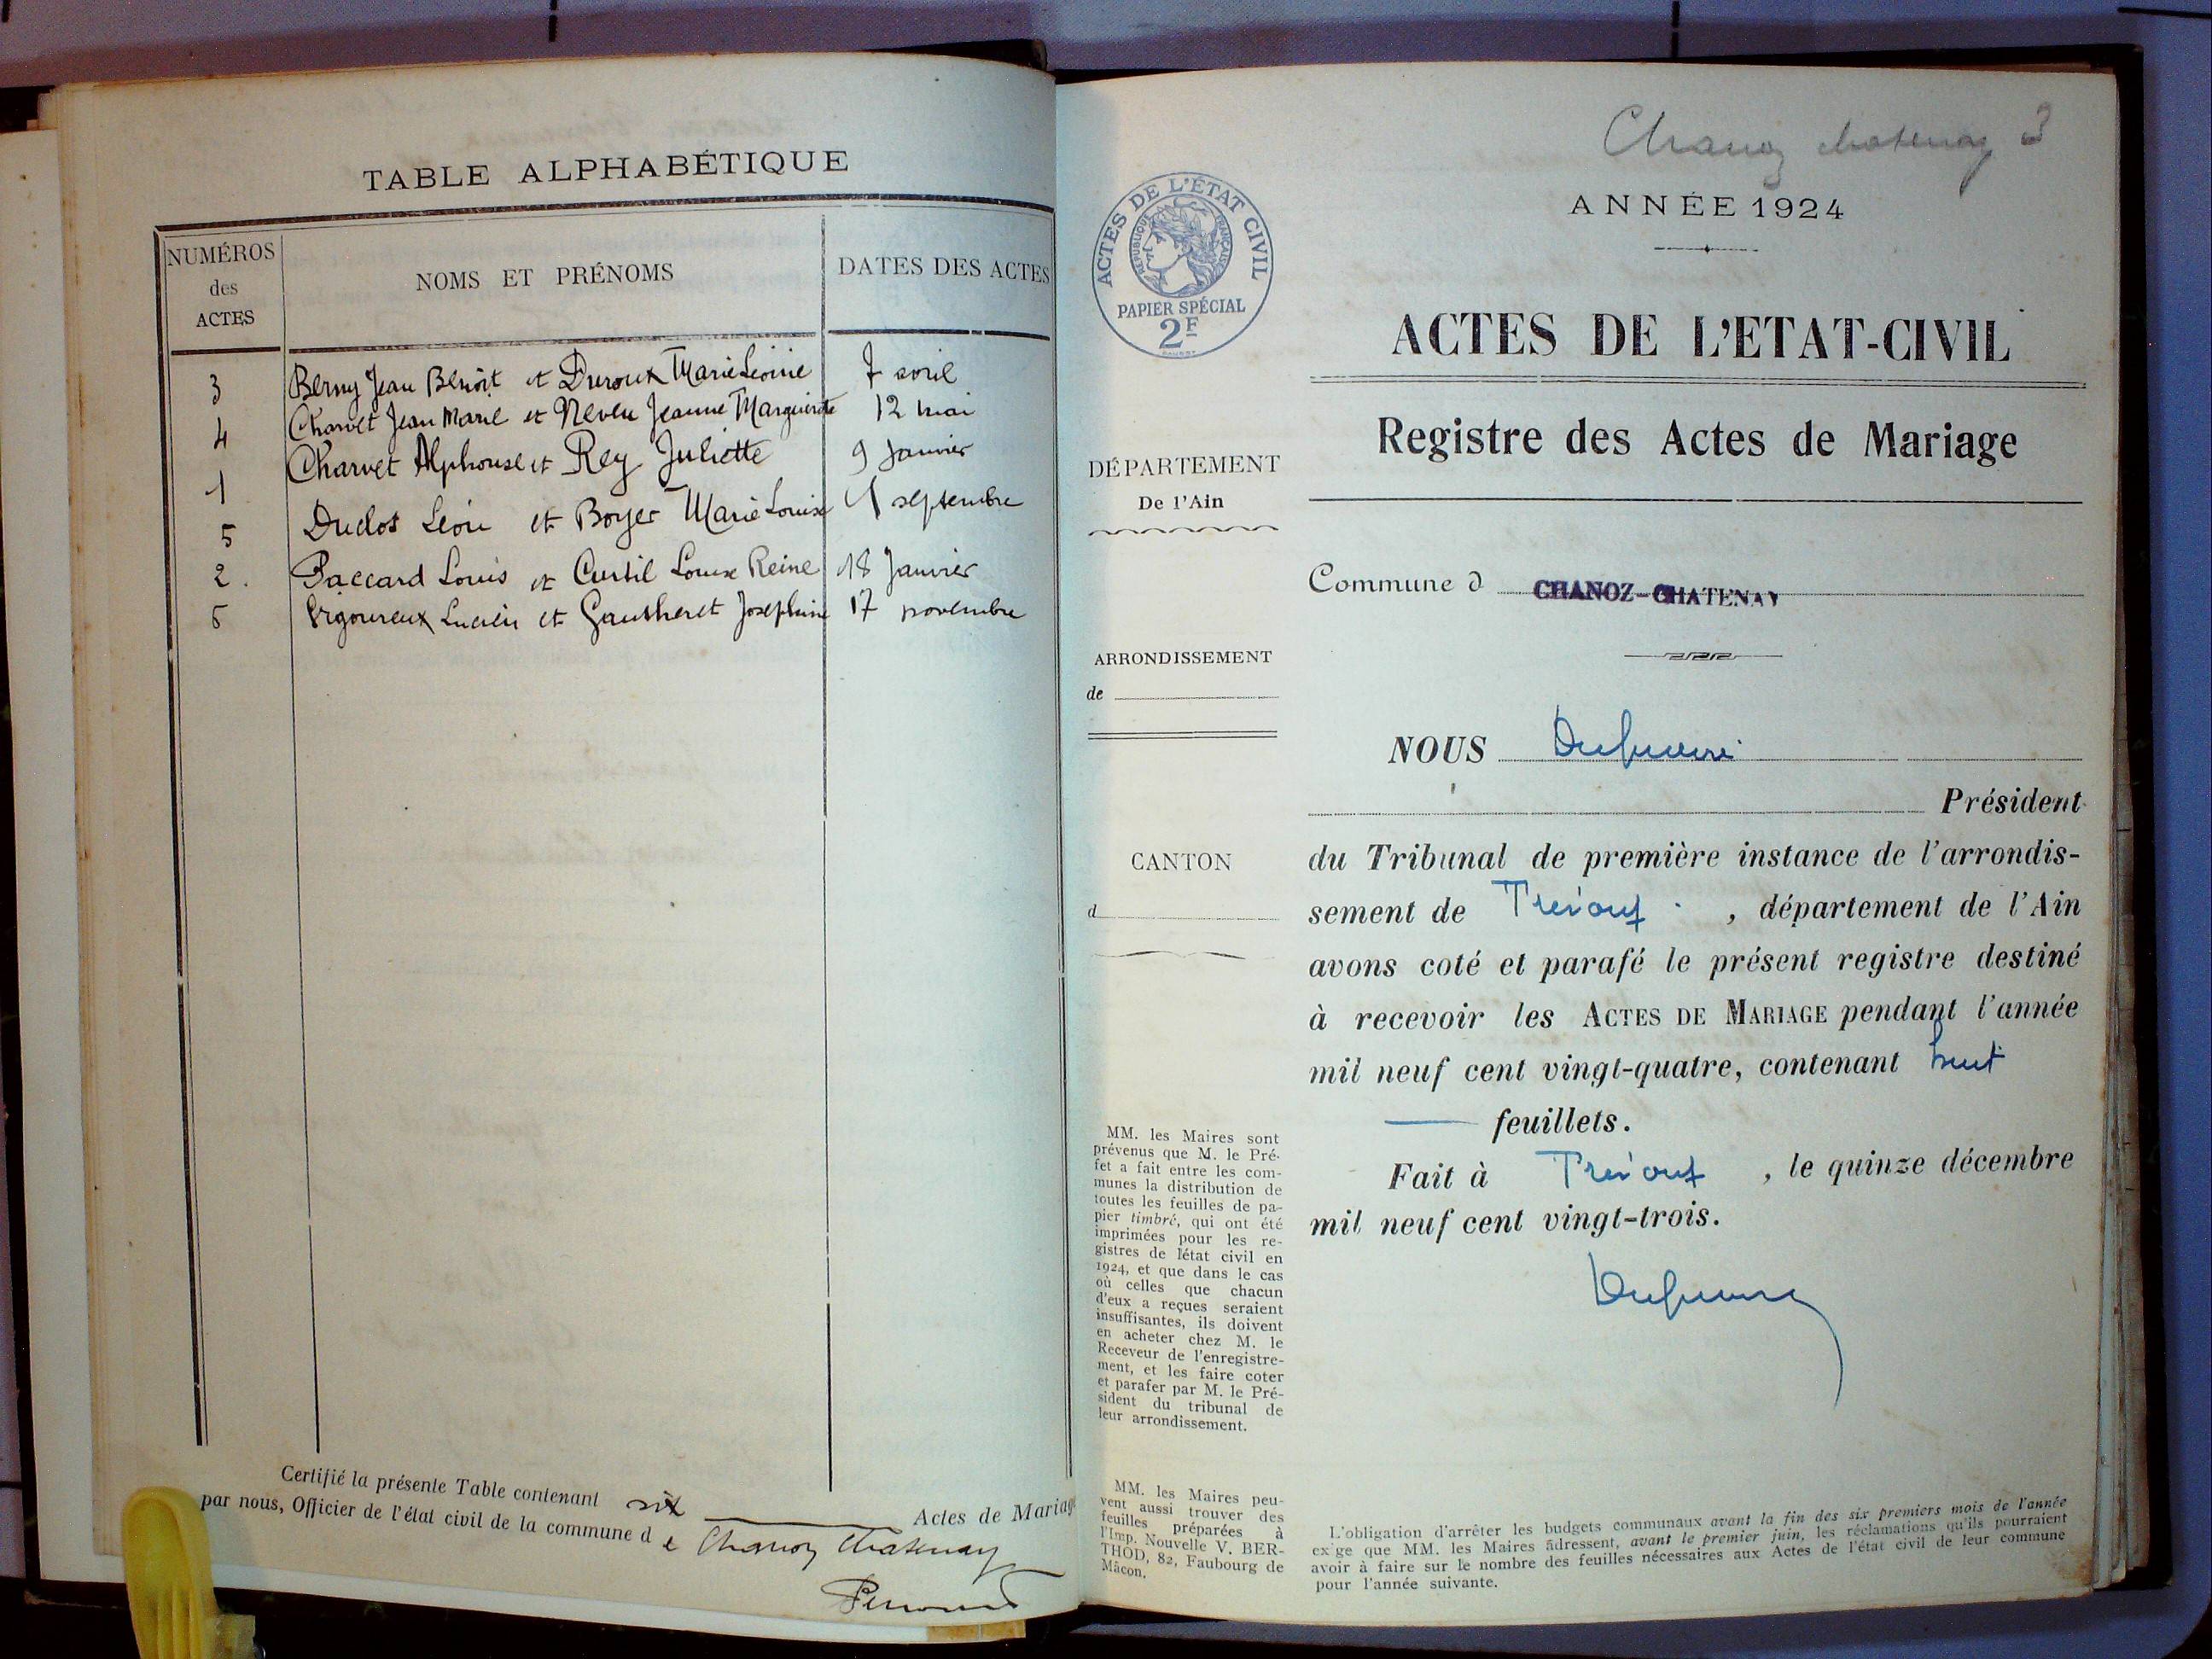 TABLE ALPHABÉTIQUE
NUMÉROS
des
ACTES
NOMS ET PRÉNOMS
DATES DES ACTES
3 Berny Jean Benoit et Duroux Marie Léonie 7 avril
4 Charvet Jean Marie et Neveu Jeanne Marguerite 12 mai
1 Charvet Alphonse et Rey Juliette 9 Janvier
5 Duclos Léon et Boyer Marie Louise septembre
2. Paccard Louis et Curtil Louise Reine 18 Janvier
6 Vigoureux Lucien et Gautheret Josephine 17 novembre
Certifié la présente Table contenant six Actes de Mariage
par nous, Officier de l'état civil de la commune d e Chanoz Chatenay
Chanoz chatenay 3
ACTES DE L'ÉTAT CIVIL
RÉPUBLIQUE FRANÇAISE
PAPIER SPÉCIAL
2F
ANNÉE 1924
ACTES DE L'ETAT-CIVIL
Registre des Actes de Mariage
DÉPARTEMENT
De l'Ain
Commune d CHANOZ-CHATENAY
ARRONDISSEMENT
de
CANTON
d
NOUS
Président
du Tribunal de première instance de l'arrondis-
sement de Trévoux, département de l'Ain
avons coté et parafé le présent registre destiné
à recevoir les ACTES DE MARIAGE pendant l'année
mil neuf cent vingt-quatre, contenant huit
feuillets.
Fait à Trévoux, le quinze décembre
mil neuf cent vingt-trois.
MM. les Maires sont
prévenus que M. le Pré-
fet a fait entre les com-
munes la distribution de
toutes les feuilles de pa-
pier timbré, qui ont été
imprimées pour les re-
gistres de l'état civil en
1924, et que dans le cas
où celles que chacun
d'eux a reçues seraient
insuffisantes, ils doivent
en acheter chez M. le
Receveur de l'enregistre-
ment, et les faire coter
et parafer par M. le Pré-
sident du tribunal de
leur arrondissement.
MM. les Maires peu-
vent aussi trouver des
feuilles préparées à
l'Imp. Nouvelle V. BER-
THOD, 82, Faubourg de
Mâcon.
L'obligation d'arrêter les budgets communaux avant la fin des six premiers mois de l'année
exige que MM. les Maires adressent, avant le premier juin, les réclamations qu'ils pourraient
avoir à faire sur le nombre des feuilles nécessaires aux Actes de l'état civil de leur commune
pour l'année suivante.